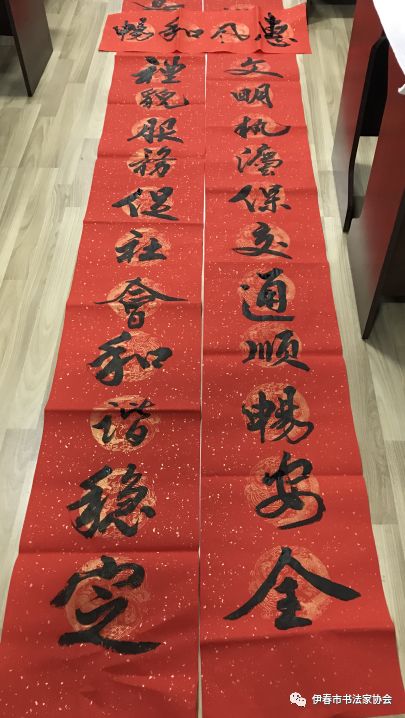 惠风和暢
文明执灋保交通顺暢安全
禮貌服務促社會和谐稳定
伊春市书法家协会